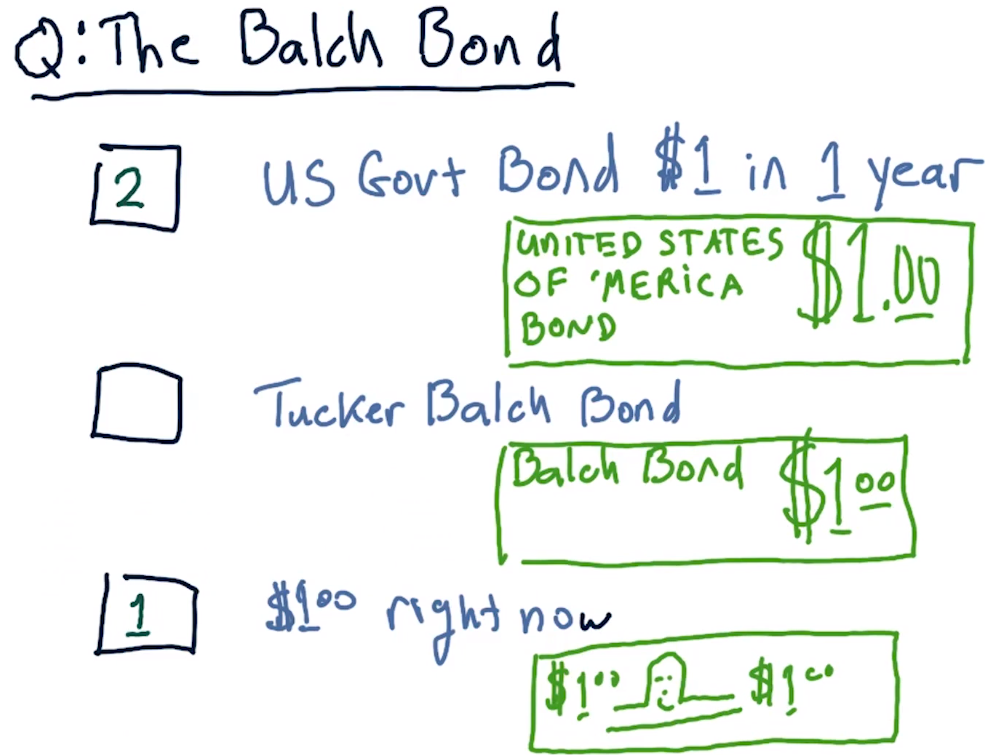 Q: The Balch Bond
2 US Govt Bond $1 in 1 year
UNITED STATES $1.00
OF 'MERICA
BOND
Tucker Balch Bond
Balch Bond $1.00
1 $1.00 right now
$1.00 $1.00